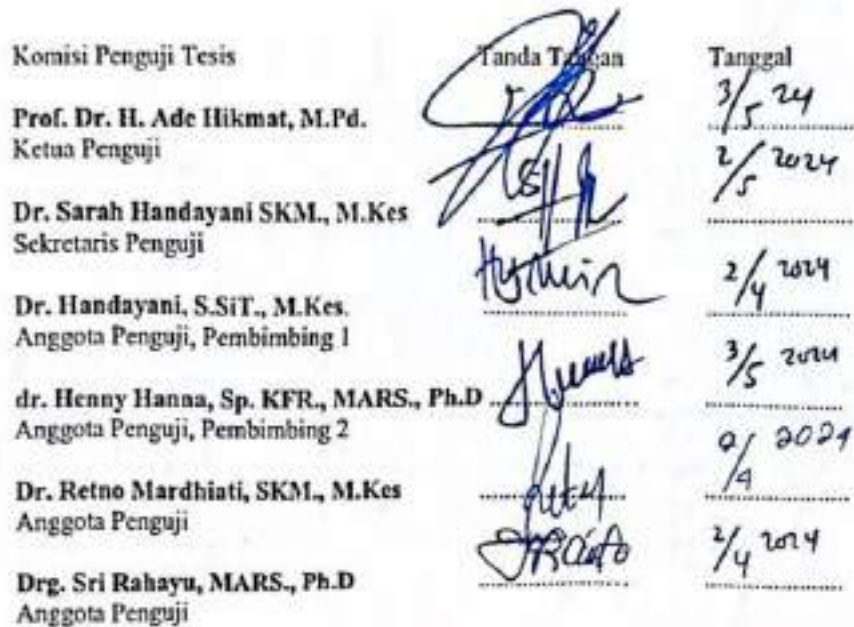 Komisi Penguji Tesis Tanda Tangan Tanggal
Prof. Dr. H. Ade Hikmat, M.Pd. 3/5 24
Ketua Penguji
2/5 2024
Dr. Sarah Handayani SKM., M.Kes
Sekretaris Penguji
2/4 2024
Dr. Handayani, S.SiT., M.Kes.
Anggota Penguji, Pembimbing 1
3/5 2024
dr. Henny Hanna, Sp. KFR., MARS., Ph.D
Anggota Penguji, Pembimbing 2
2024
Dr. Retno Mardhiati, SKM., M.Kes
Anggota Penguji
2/4 2024
Drg. Sri Rahayu, MARS., Ph.D
Anggota Penguji